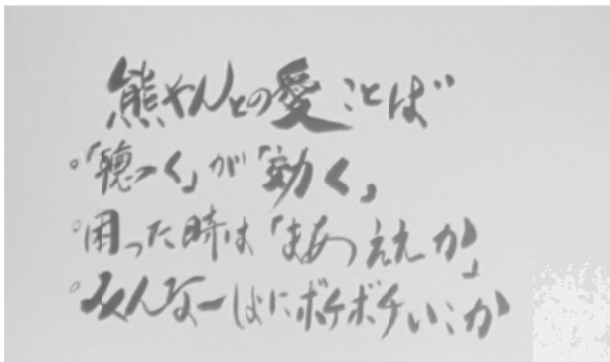 熊やんとの愛ことば
。「聴っく」が「効く」
。困った時は「まあええか」
。みんな一しょにボチボチいこか